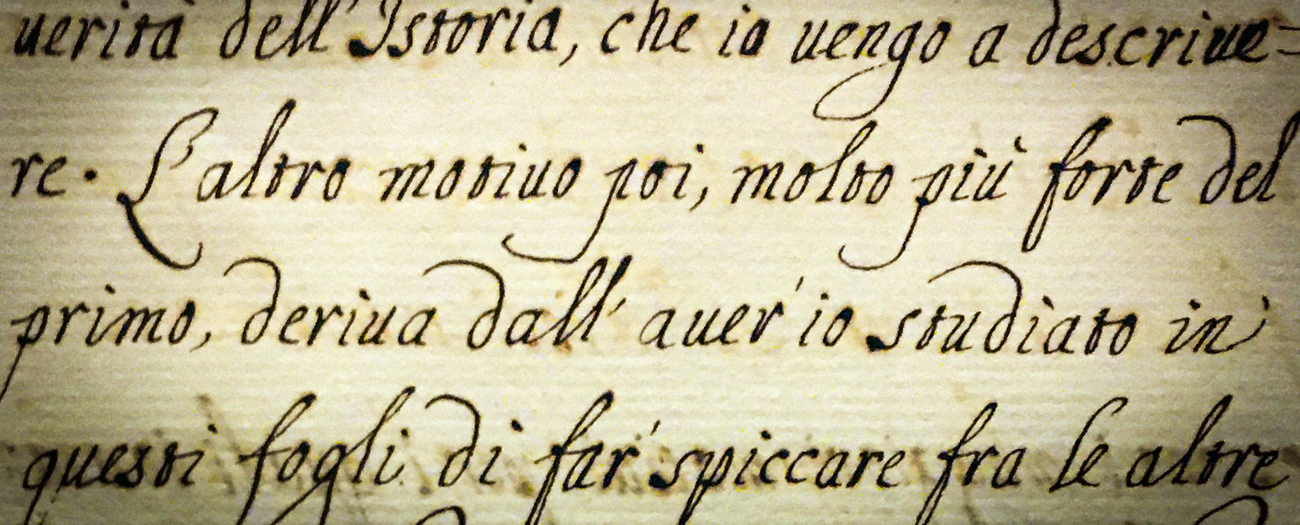 uerità dell' Istoria, che io uengo a descriue=
re. L'altro motiuo poi, molto più forte del
primo, deriua dall' auer' io studiato in
questi fogli di far' spiccare fra le altre